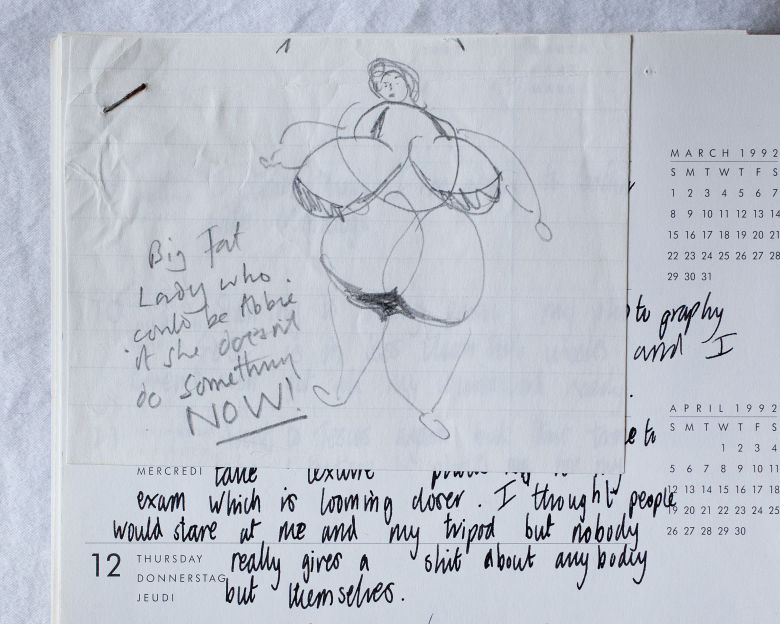 Big Fat
Lady who
could be Abbie
if she doesn't
do something
NOW!
MARCH 1992
S M T W T F S
1 2 3 4 5 6 7
8 9 10 11 12 13 14
15 16 17 18 19 20 21
22 23 24 25 26 27 28
29 30 31
to graphy
and I
APRIL 1992
S M T W T F S
1 2 3 4
5 6 7 8 9 10 11
12 13 14 15 16 17 18
19 20 21 22 23 24 25
26 27 28 29 30
e to
MERCREDI take texture
exam which is looming closer. I thought people
would stare at me and my tripod but nobody
12 THURSDAY really gives a shit about anybody
DONNERSTAG
JEUDI but themselves.